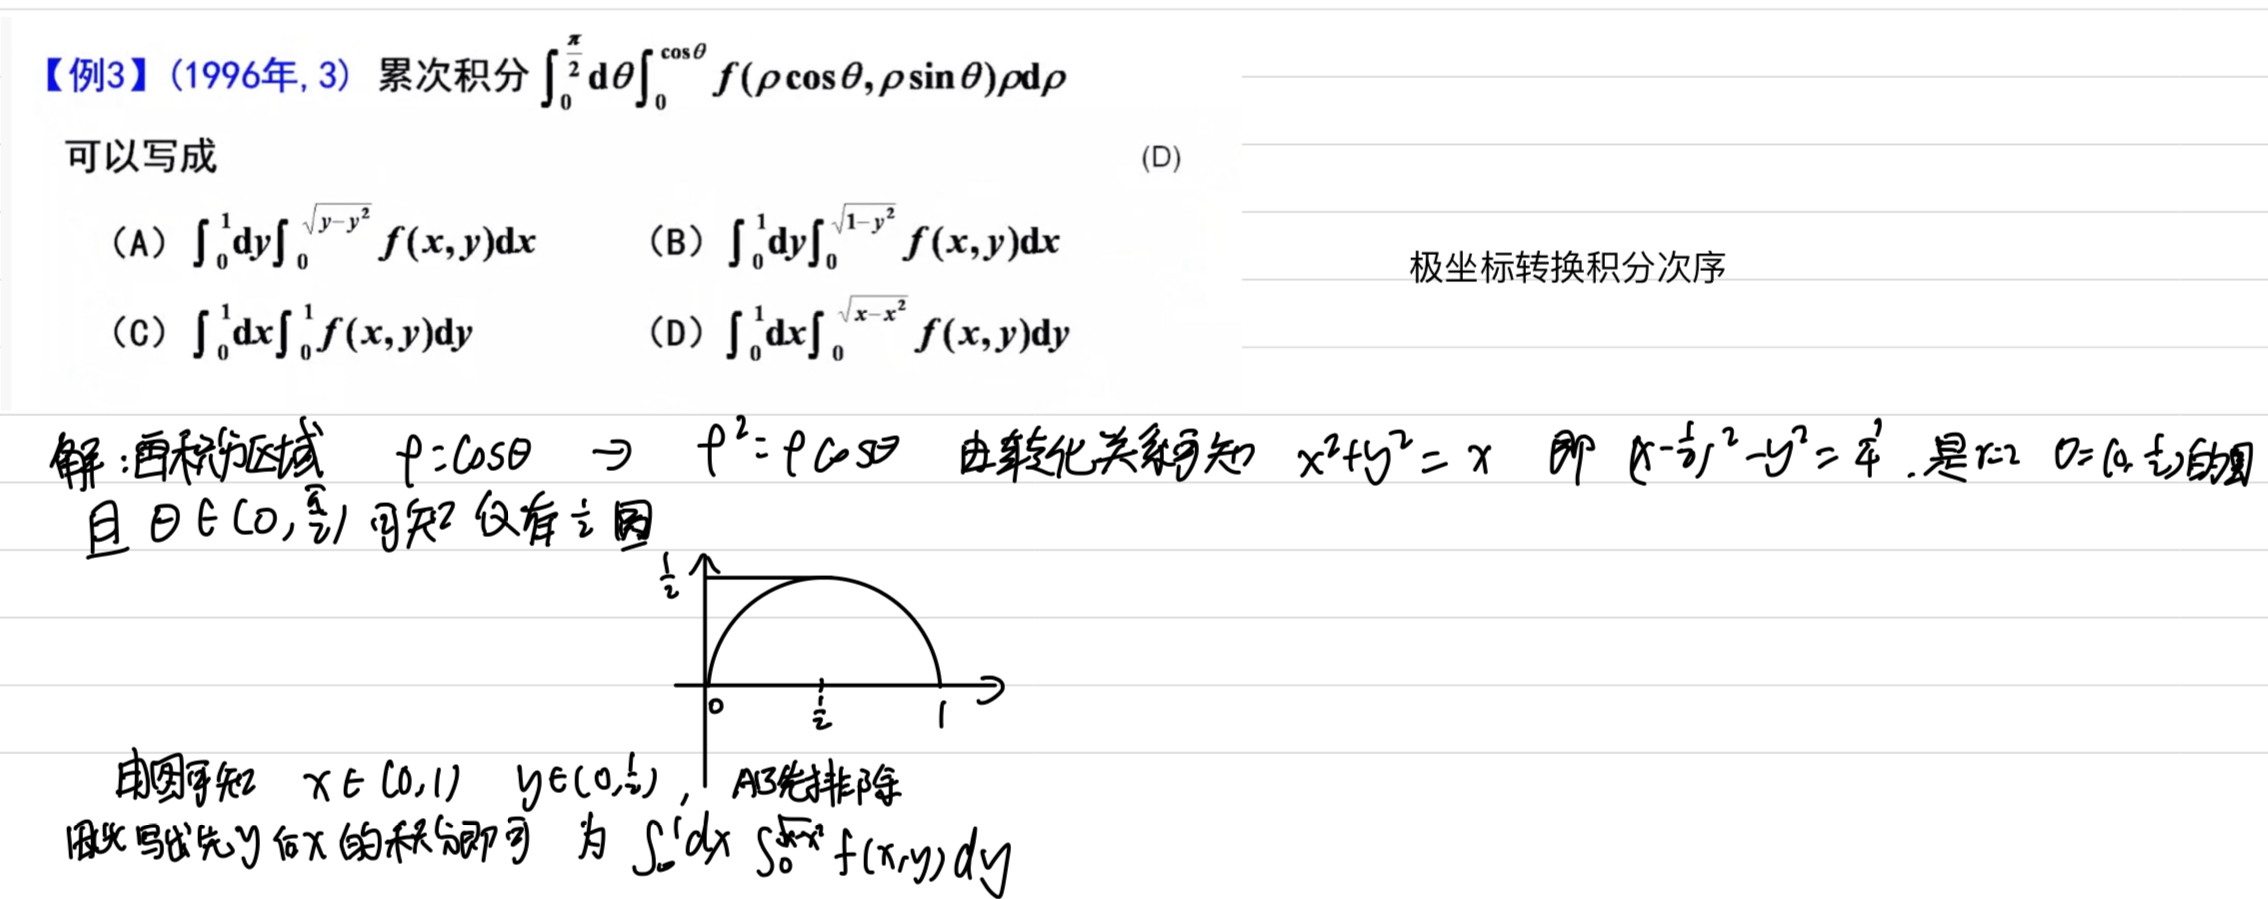 【例3】(1996年,3) 累次积分 ∫₀^{π/2} dθ ∫₀^{cosθ} f(ρcosθ, ρsinθ)ρdρ
可以写成 (D)
(A) ∫₀¹dy∫₀^{√(y−y²)} f(x,y)dx (B) ∫₀¹dy∫₀^{√(1−y²)} f(x,y)dx
极坐标转换积分次序
(C) ∫₀¹dx∫₀¹ f(x,y)dy (D) ∫₀¹dx∫₀^{√(x−x²)} f(x,y)dy
解:画积分区域 ρ=cosθ → ρ²=ρcosθ 由转化关系可知 x²+y²=x 即 (x-½)²-y²=¼. 是r=2 O=(0,½)的圆
且 θ∈(0,π/2) 可知 仅有 ½ 圆
½
0 ½ 1
由图可知 x∈(0,1) y∈(0,½), AB先排除
因此写成先y后x的积分即可 为 ∫₀¹dx ∫₀^{√(x-x²)} f(x,y)dy